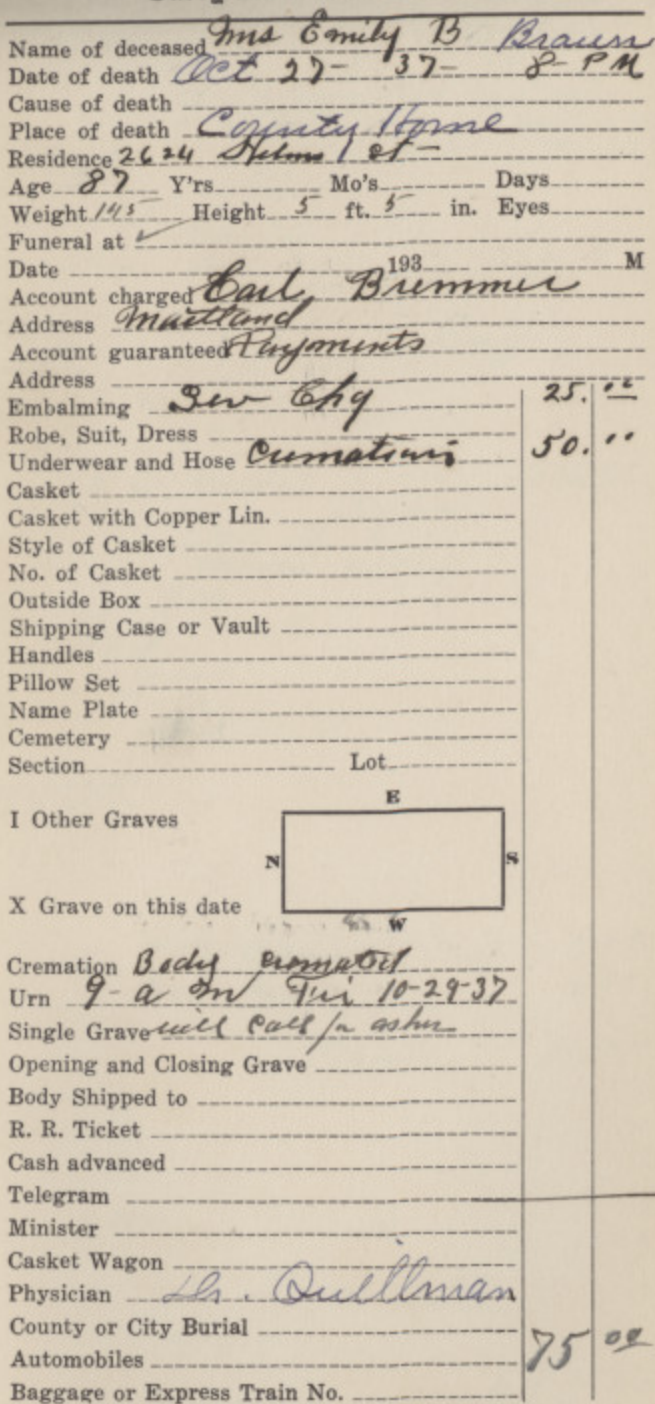 Name of deceased Mrs Emily B Braun
Date of death Oct 27- 37- 8- PM
Cause of death
Place of death County Home
Residence 2624 st-
Age 87 Y'rs Mo's Days
Weight 145 Height 5 ft. 5 in. Eyes
Funeral at
Date 193 M
Account charged Earl Bremmer
Address Maitland
Account guaranteed Payments
Address
Embalming Ser Chg 25.00
Robe, Suit, Dress
Underwear and Hose Cremation 50.00
Casket
Casket with Copper Lin.
Style of Casket
No. of Casket
Outside Box
Shipping Case or Vault
Handles
Pillow Set
Name Plate
Cemetery
Section Lot
E
I Other Graves
N S
X Grave on this date
W
Cremation Body cremated
Urn 9- a m Fri 10-29-37
Single Grave will call for ashes
Opening and Closing Grave
Body Shipped to
R. R. Ticket
Cash advanced
Telegram
Minister
Casket Wagon
Physician Dr. Quillman
County or City Burial
Automobiles 75 00
Baggage or Express Train No.